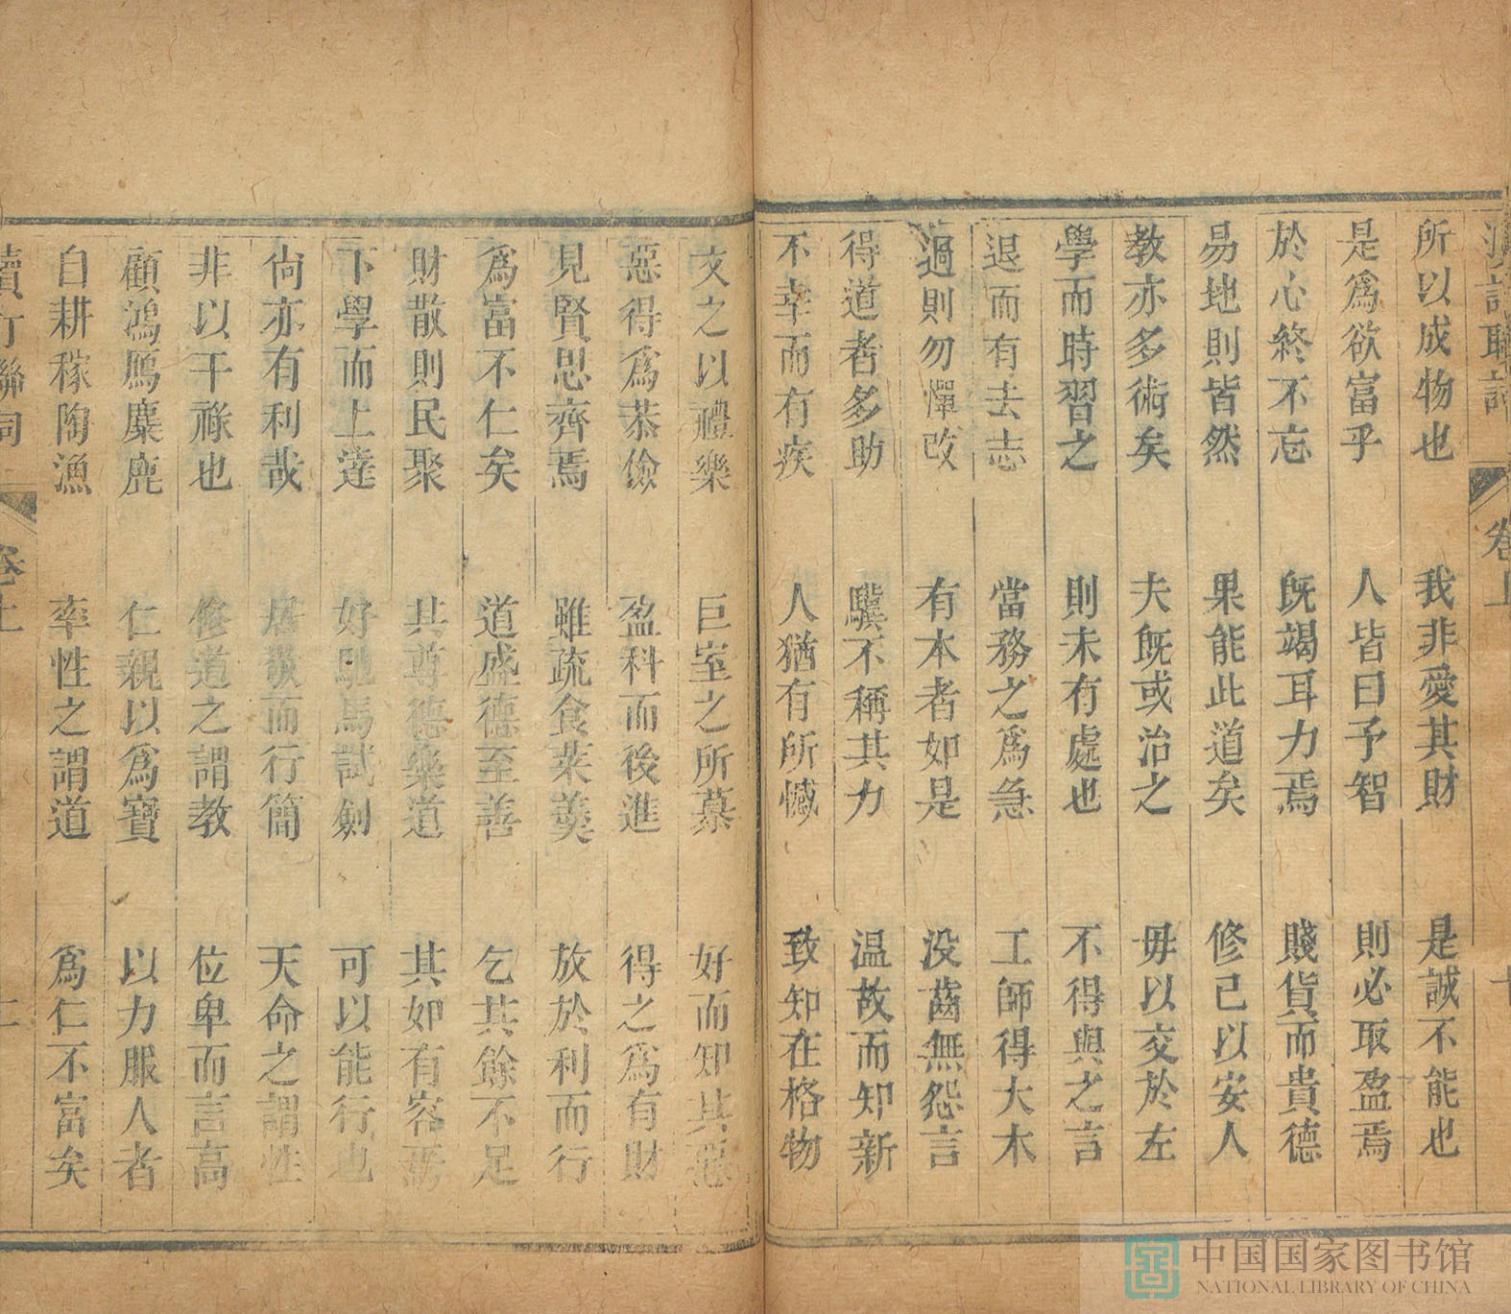 所以成物也 我非愛其財 是誠不能也
是爲欲富乎 人皆曰予智 則必取盈焉
於心終不忘 既竭耳力焉 賤貨而貴德
易地則皆然 果能此道矣 修己以安人
教亦多術矣 夫既或治之 毋以交於左
學而時習之 則未有處也 不得與之言
退而有去志 當務之爲急 工師得大木
過則勿憚改 有本者如是 没齒無怨言
得道者多助 驥不稱其力 温故而知新
不幸而有疾 人猶有所憾 致知在格物
文之以禮樂 巨室之所慕 好而知其惡
惡得爲恭儉 盈科而後進 得之爲有財
見賢思齊焉 雖疏食菜羹 放於利而行
爲富不仁矣 道盛德至善 乞其餘不足
財散則民聚 其尊德樂道 其如有容焉
下學而上達 好馳馬試劍 可以能行也
尙亦有利哉 居敬而行簡 天命之謂性
非以干祿也 修道之謂教 位卑而言高
顧鴻鴈麋鹿 仁親以爲寶 以力服人者
自耕稼陶漁 率性之謂道 爲仁不富矣
卷上
二
中国国家图书馆
NATIONAL LIBRARY OF CHINA